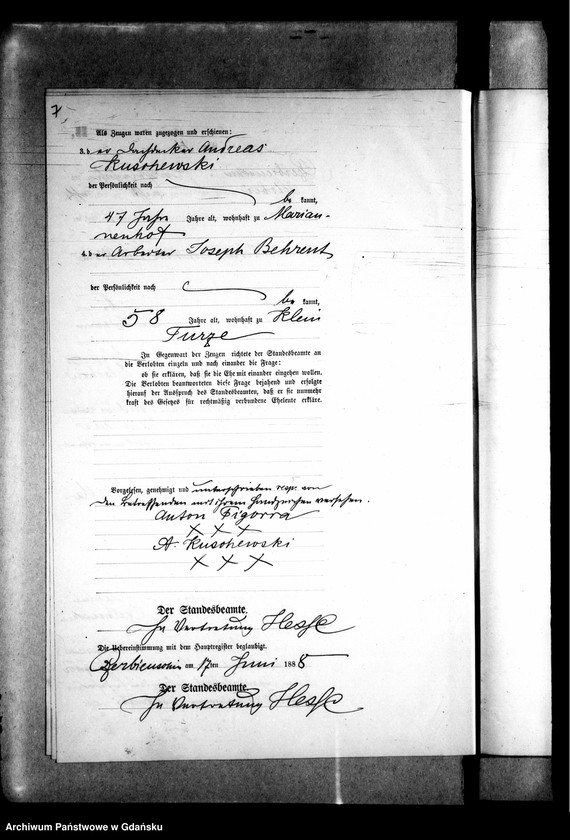 7,
Als Zeugen waren zugezogen und erschienen:
3. der Dachdecker Andreas
Kuschewski
der Persönlichkeit nach
be kannt,
47 Jahre Jahre alt, wohnhaft zu Marian-
nenhof
4. der Arbeiter Joseph Behrent
der Persönlichkeit nach
be kannt,
58 Jahre alt, wohnhaft zu Klein
Turze
In Gegenwart der Zeugen richtete der Standesbeamte an
die Verlobten einzeln und nach einander die Frage:
ob sie erklären, daß sie die Ehe mit einander eingehen wollen.
Die Verlobten beantworteten diese Frage bejahend und erfolgte
hierauf der Ausspruch des Standesbeamten, daß er sie nunmehr
kraft des Gesetzes für rechtmäßig verbundene Eheleute erkläre.
Vorgelesen, genehmigt und unterschrieben resp. von
den Betreffenden mit ihrem Handzeichen versehen.
Anton Figorra
X X X
A. Kuschewski
X X X
Der Standesbeamte.
In Vertretung Hesse
Die Uebereinstimmung mit dem Hauptregister beglaubigt.
am 17ten Juni 1888
Der Standesbeamte.
In Vertretung Hesse
Archiwum Państwowe w Gdańsku